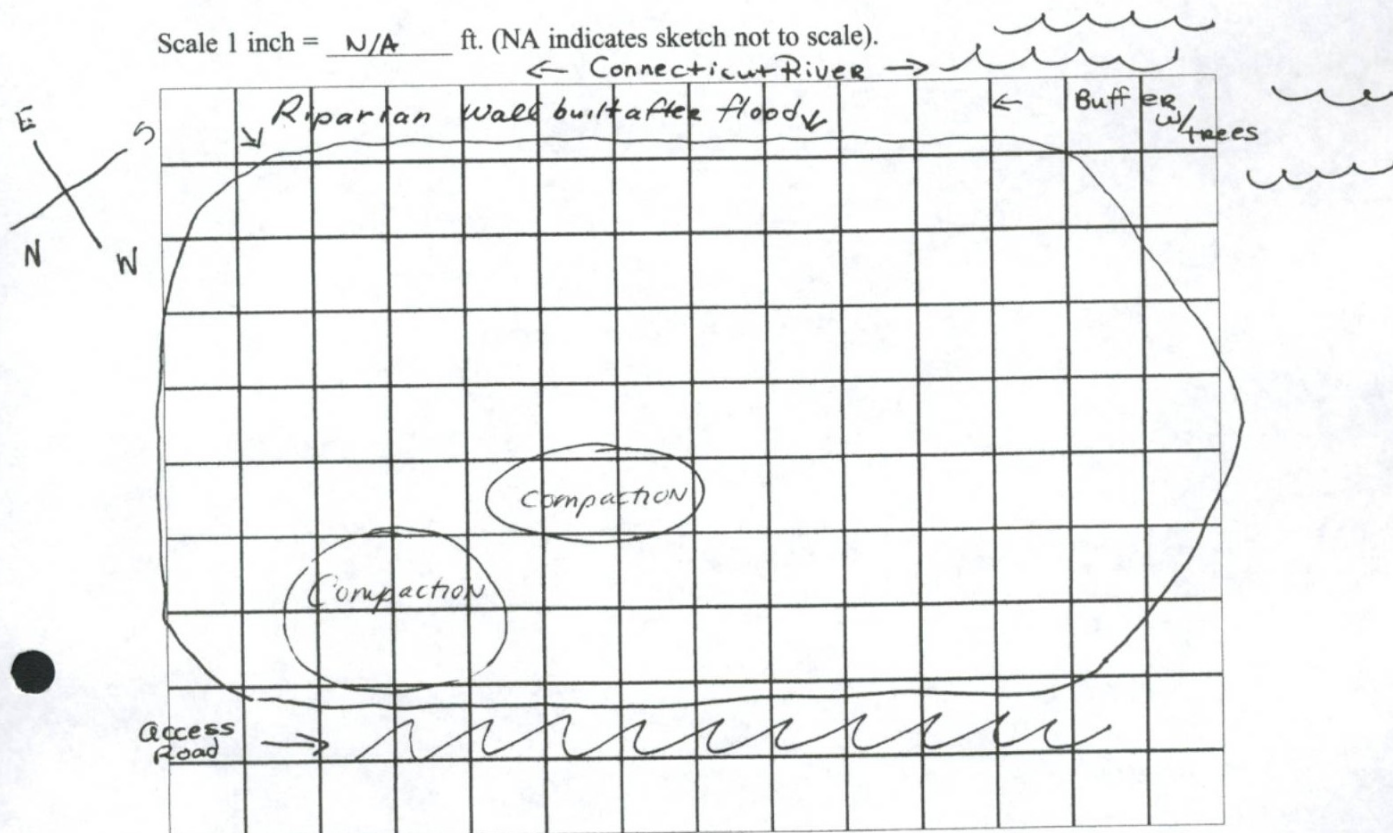 Scale 1 inch = N/A ft. (NA indicates sketch not to scale).
← Connecticut River →
Riparian Wall built after flood
← Buffer
w/trees
E
S
N
W
Compaction
Compaction
Access
Road →